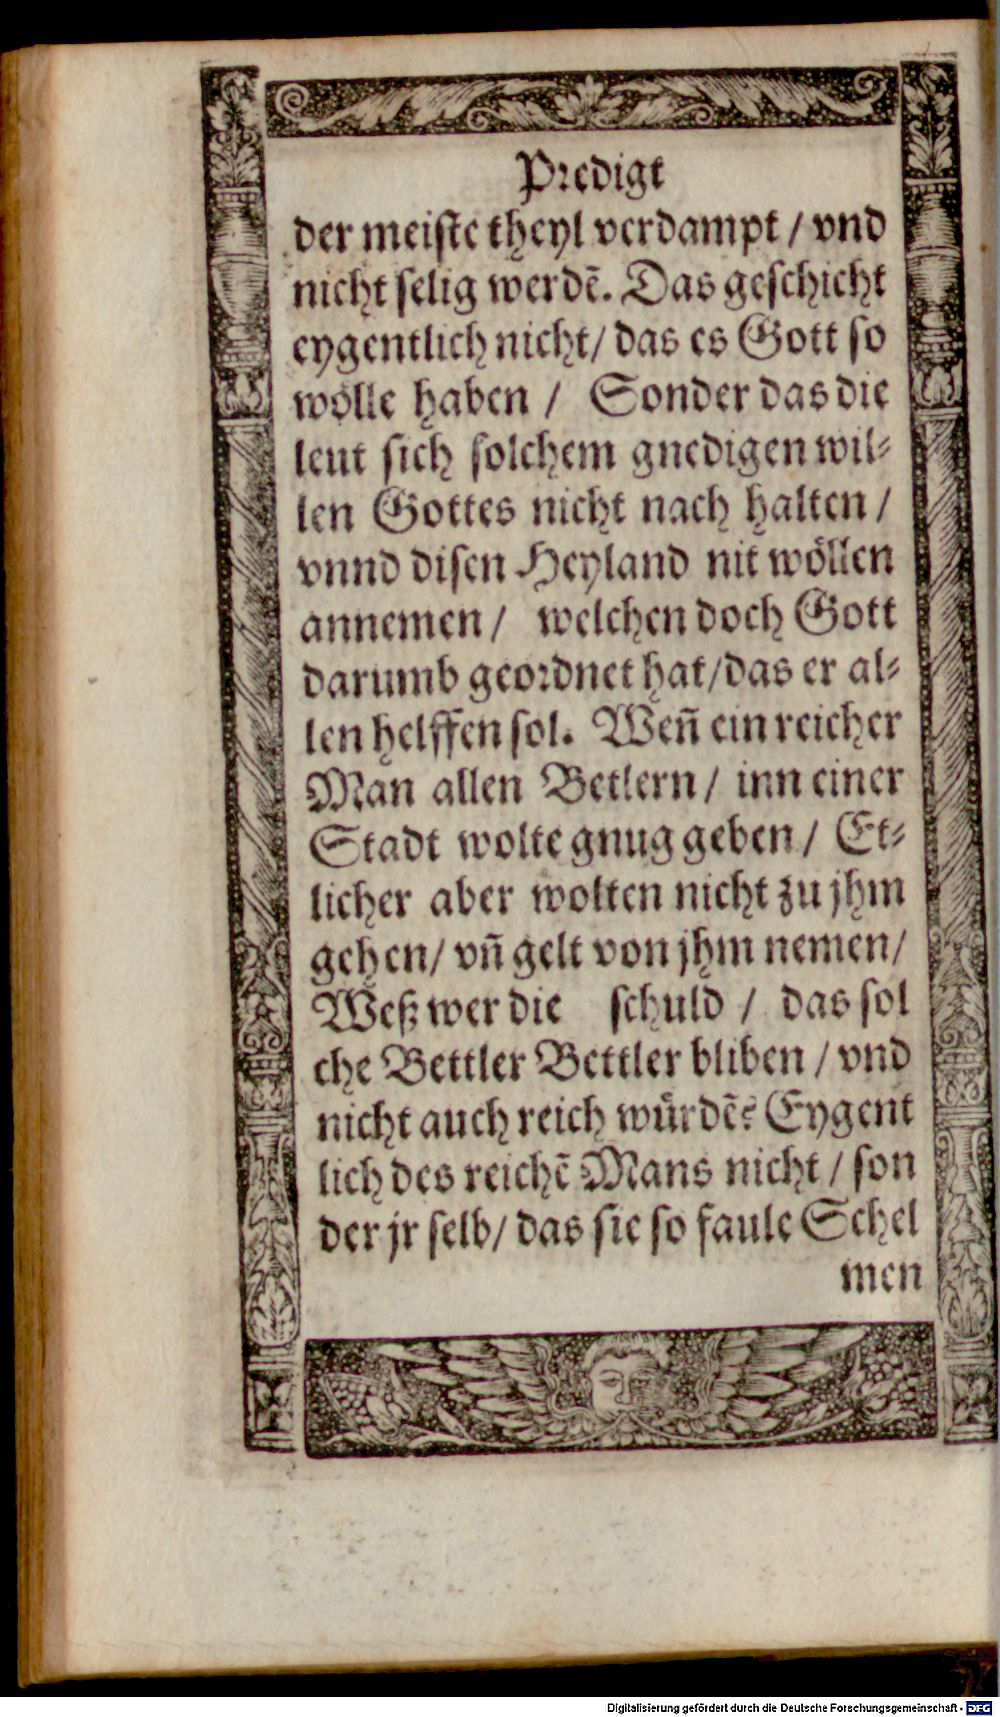 Predigt
der meiste theyl verdampt / vnd
nicht selig werdẽ. Das geschicht
eygentlich nicht / das es Gott so
wölle haben / Sonder das die
leut sich solchem gnedigen wil⸗
len Gottes nicht nach halten /
vnnd disen Heyland nit wöllen
annemen / welchen doch Gott
darumb geordnet hat / das er al⸗
len helffen sol. Weñ ein reicher
Man allen Betlern / inn einer
Stadt wolte gnug geben / Et⸗
licher aber wolten nicht zu jhm
gehen / vñ gelt von jhm nemen /
Weß wer die schuld / das sol
che Bettler Bettler bliben / vnd
nicht auch reich würdẽ? Eygent
lich des reichẽ Mans nicht / son
der jr selb / das sie so faule Schel
men
Digitalisierung gefördert durch die Deutsche Forschungsgemeinschaft - DFG